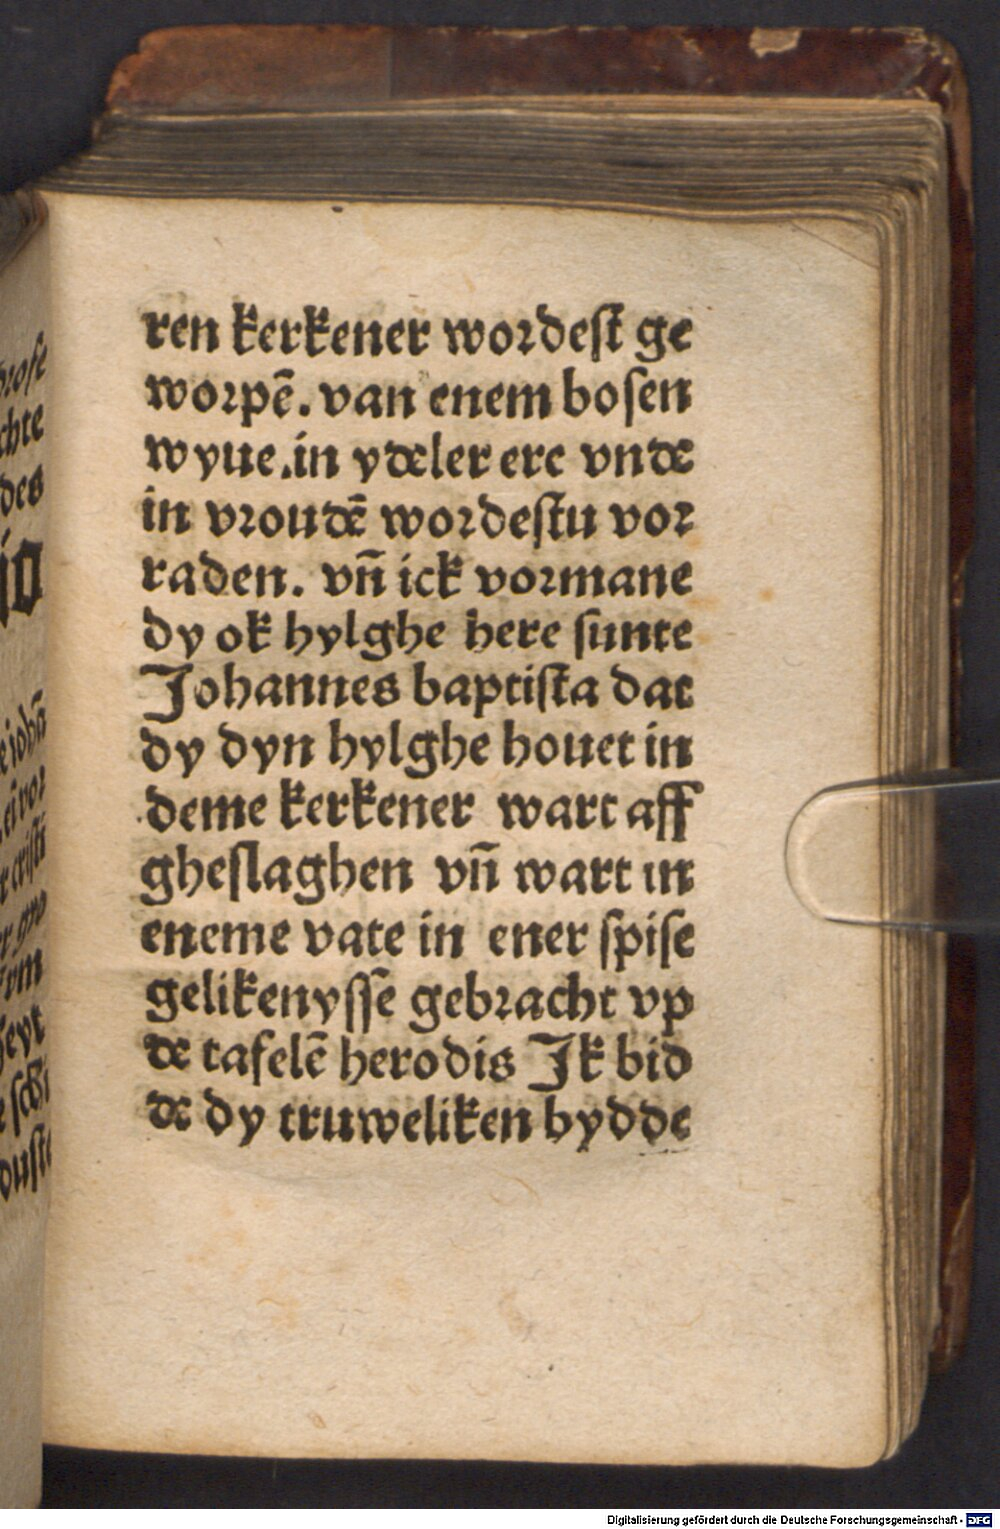 ren kerkener wordest ge
worpē. van enem bosen
wyue .in ydeler ere vnde
in vroudē wordestu vor
raden. vn̄ ick vormane
dy ok hylghe here sunte
Johannes baptista dat
dy dyn hylghe houet in
deme kerkener wart aff
gheslaghen vn̄ wart in
eneme vate in ener spise
gelikenyssē gebracht vp
de tafelē herodis Ik bid
de dy truweliken bydde
Digitalisierung gefördert durch die Deutsche Forschungsgemeinschaft - DFG